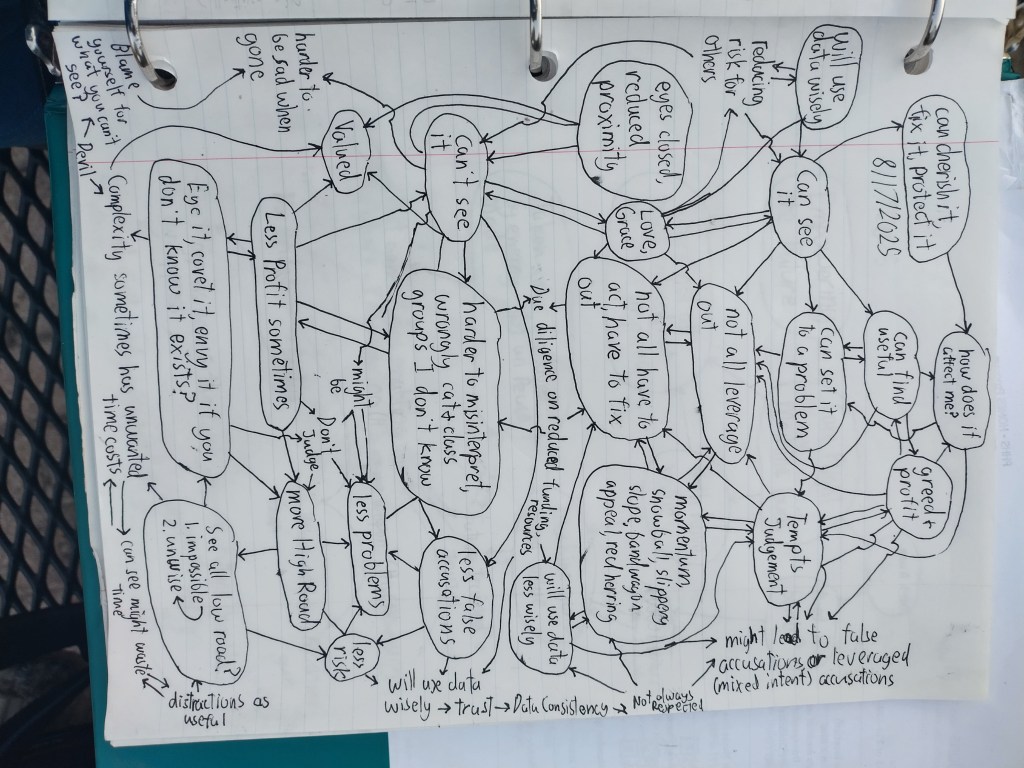 Will use
data wisely
can cherish it,
fix it, protect it
8/17/2025
reducing
risk for
others
Can see
it
how does it
affect me?
can find
useful
greed +
profit
Can set it
to a problem
Tempts
Judgement
eyes closed,
reduced
proximity
Love,
Grace
not all leverage
out
not all have to
act, have to fix
out
momentum
snowball, slippery
slope, bandwagon
appeal, red herring
might lead to false
accusations or leveraged
(mixed intent) accusations
Due diligence on reduced funding,
resources
will use data
less wisely
Not always
Respected
harder to
be sad when
gone
Valued
Can't see
it
harder to misinterpret,
wrongly cat+class
groups I don't know
less false
accusations
might
be
Don't
Judge
less problems
Less Profit sometimes
more High Road
less
risk
will use data
wisely → trust → Data Consistency →
Blame
yourself for
what you can't
see?
Devil
Eye it, covet it, envy it if you
don't know it exists?
See all low road?
1. impossible
2. unwise
Complexity sometimes has unwanted
time costs
can see might waste
time
distractions as
useful